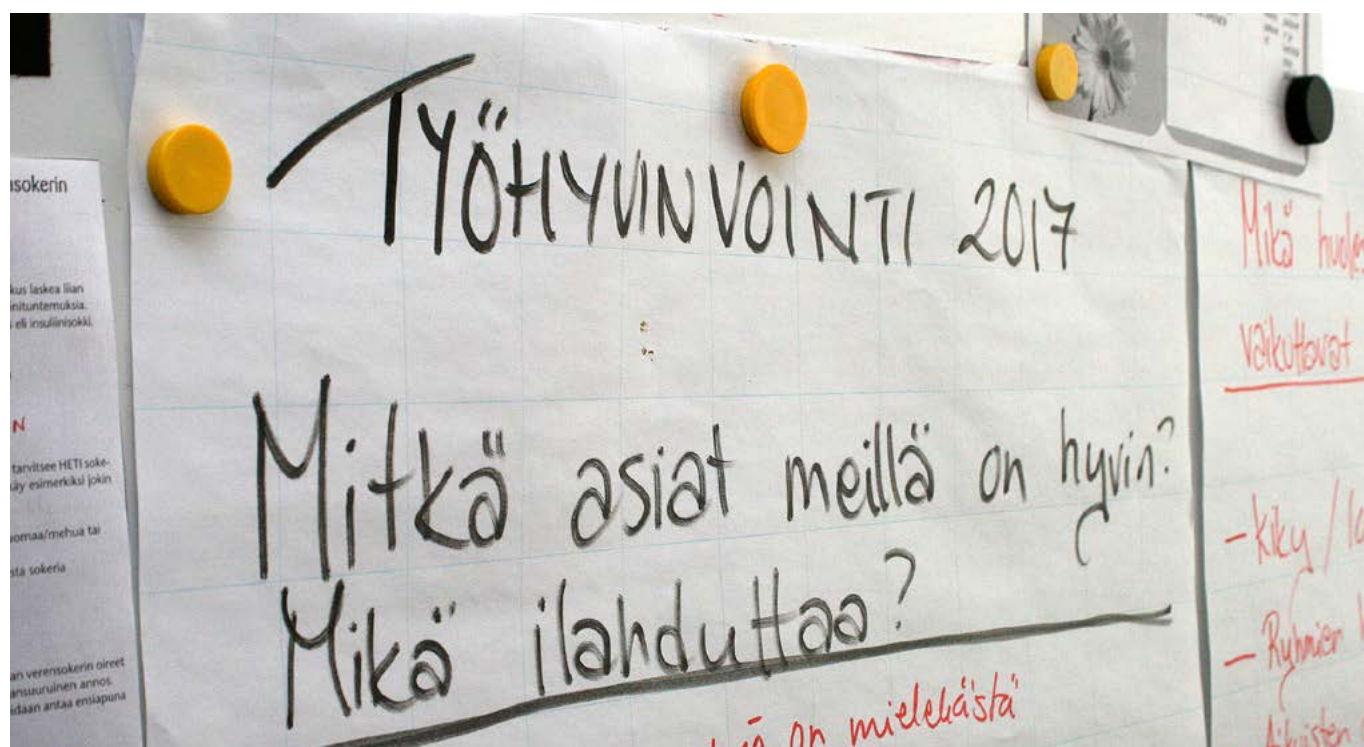 sokerin
kus laskea liian
nituntemuksia.
eli insuliinisokki.
N
tarvitsee HETI soke-
esimerkiksi jokin
omaa/mehua tai
sta sokeria
an verensokerin oireet
ansuuruinen annos.
daan antaa ensiapuna
TYÖHYVINVOINTI 2017
Mitkä asiat meillä on hyvin?
Mikä ilahduttaa?
on mielekästä
Mikä
vaikuttavat
- kiky /
- Ryhmien